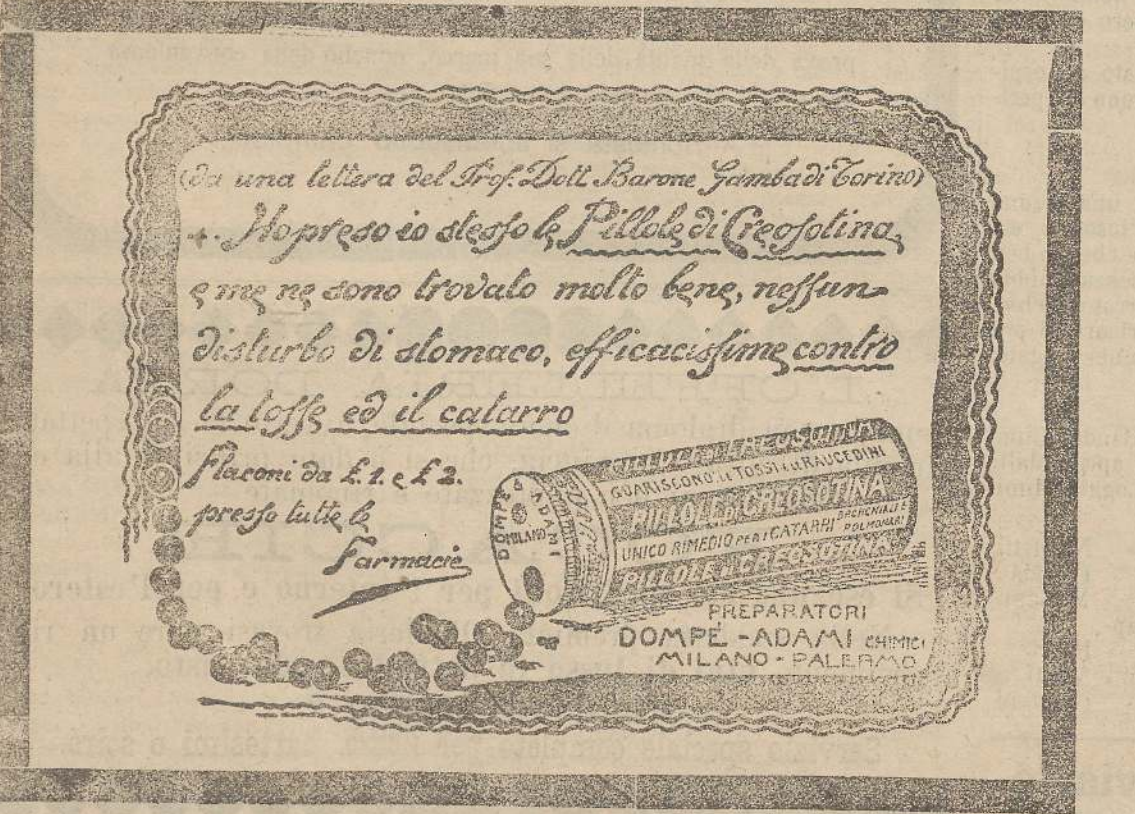 (da una lettera del Prof. Dott. Barone Gamba di Torino)
Ho preso io stesso le Pillole di Creosotina
e me ne sono trovato molto bene, nessun
disturbo di stomaco, efficacissime contro
la tosse ed il catarro
Flaconi da £. 1. e £ 2.
presso tutte le
Farmacie
DOMPÉ ADAMI
MILANO
PILLOLE DI CREOSOTINA
GUARISCONO LE TOSSI E LE RAUCEDINI
PILLOLE DI CREOSOTINA
UNICO RIMEDIO PER I CATARRI BRONCHIALI E POLMONARI
PILLOLE DI CREOSOTINA
PREPARATORI
DOMPÉ - ADAMI CHIMICI
MILANO - PALERMO